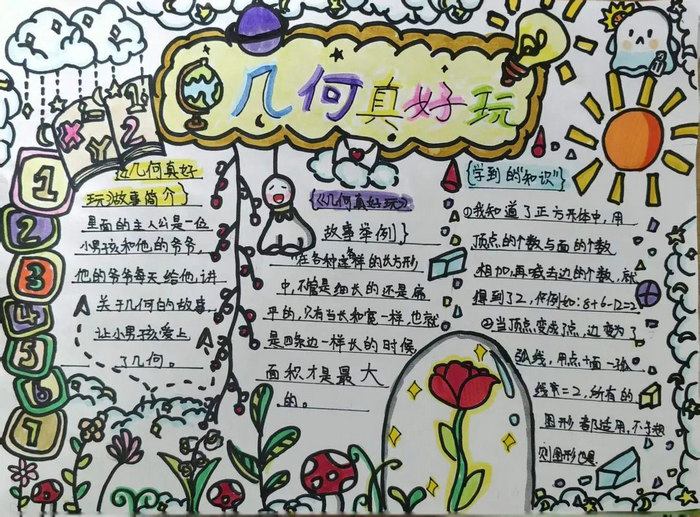 几何真好玩
1
X=
Y
2
1
2
3
4
5
6
7
《几何真好
玩》故事简介}
里面的主人公是一位
小男孩和他的爷爷,
他的爷爷每天给他讲
关于几何的故事,
让小男孩爱上
了几何。
{《几何真好玩》
故事举例}
在各种这样的长方形
中,不管是细长的还是扁
平的,只有当长和宽一样,也就
是四条边一样长的时候
面积才是最大
的。
{学到的"知识"}
①我知道了正方形体中,用
顶点的个数与面的个数
相加,再减去边的个数,就
得到了2,例如:8+6-12=2
②当顶点变成了点,边变为了
弧线,用点+面-弧
线=2,所有的
图形都适用,不规
则图形也是